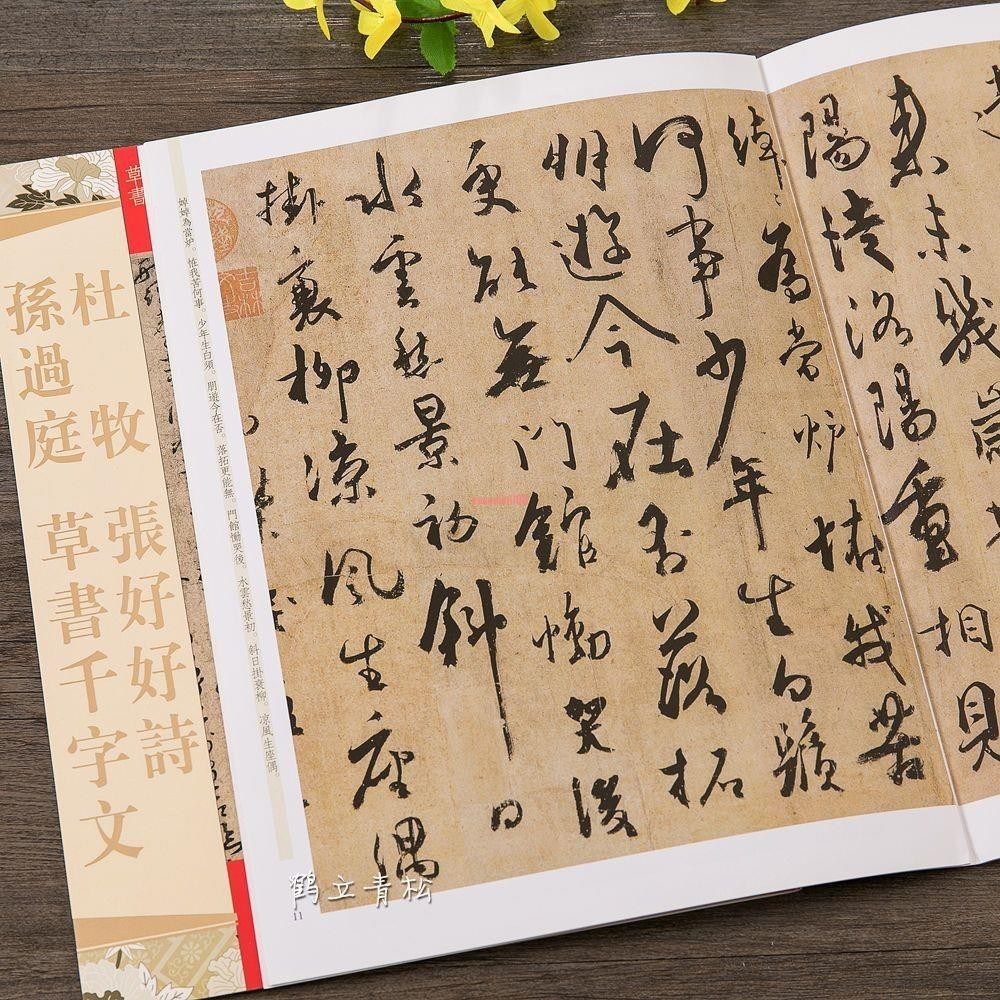 草書
杜牧 張好好詩
孫過庭 草書千字文
婥婥為當垆。惟我苦何事。少年生白須。朋遊今在否。落拓更能無。門館慟哭後。水雲愁景初。斜日掛衰柳。凉風生座偶。
来未幾歲
陽徒洛陽重相見
婥〻為當垆怪我苦
何事少年生白鬚
朋遊今在否落拓
更能無門館慟哭後
水雲愁景初斜日
掛衰柳凉風生座偶
鹤立青松
11